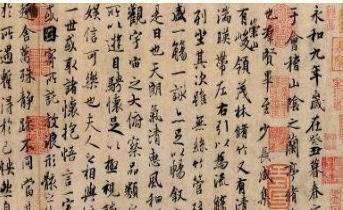 永和九年歲在癸丑暮春
于會稽山陰之蘭亭
也群賢畢至少長咸集
有崇山峻領茂林脩竹又有清
湍暎帶左右引以為流觴
列坐其次雖無絲竹管弦
盛一觴一詠亦足以暢敘
是日也天朗氣清惠風和
觀宇宙之大俯察品類
所以遊目騁懷足以極視
娛信可樂也夫人之相與
一世或取諸懷抱悟言一
或因寄所託放浪形骸之
趣舍萬殊靜躁不同當
於所遇暫得於己快然自